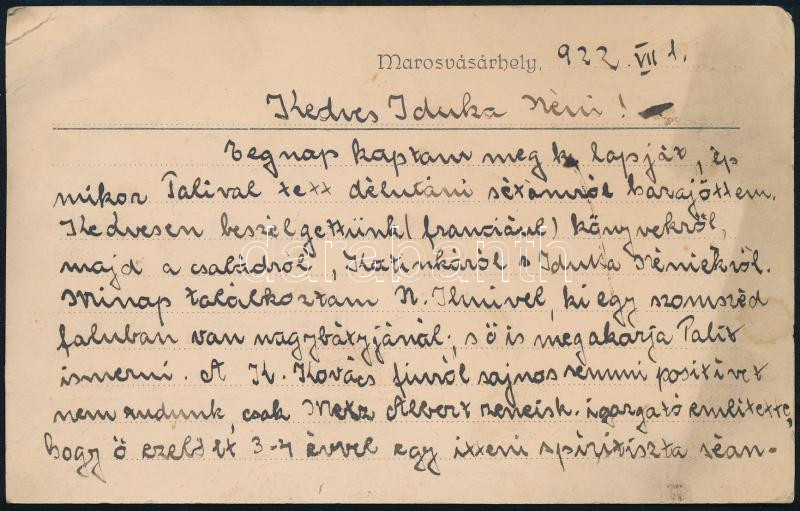 Marosvásárhely, 922. VII 1.
Kedves Iduka Néni!
Tegnap kaptam meg k. lapját, ép
mikor Talival tett délutáni sétámról hazajöttem.
Kedvesen beszélgettünk (franciául) könyvekről,
majd a családról, Katinkáról s Iduka Néniékről.
Minap találkoztam N. Ilmivel, ki egy szomszéd
faluban van nagybátyjánál, s ő is megakarja Talit
ismerni. A K. Kovács fiuról sajnos semmi positivet
nem tudunk, csak Metz Albert zeneisk. igazgató emlitette,
hogy ő ezelőtt 3-4 évvel egy itteni spiritiszta séan-
darabanth